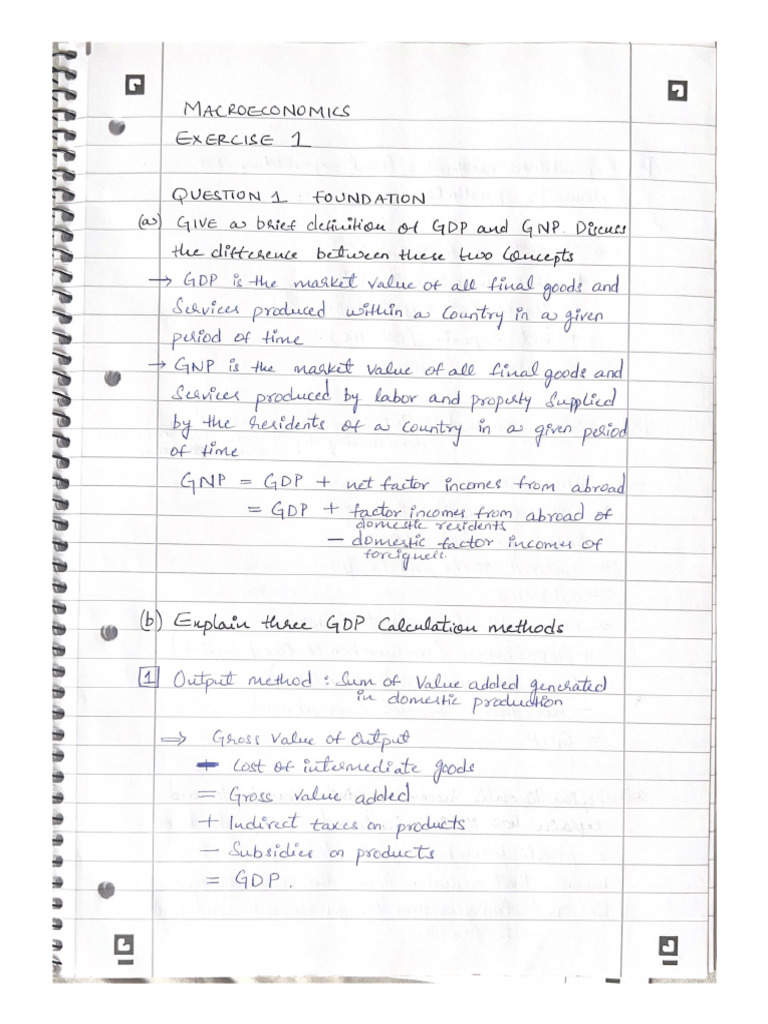 MACROECONOMICS
EXERCISE 1
QUESTION 1 : FOUNDATION
(a) GIVE a brief definition of GDP and GNP. Discuss
the difference between these two Concepts
→ GDP is the market value of all final goods and
Services produced within a Country in a given
period of time
→ GNP is the market value of all final goods and
Services produced by labor and property Supplied
by the residents of a Country in a given period
of time
GNP = GDP + net factor incomes from abroad
= GDP + factor incomes from abroad of
domestic residents
- domestic factor incomes of
foreigners.
(b) Explain three GDP Calculation methods
1 Output method : Sum of Value added generated
in domestic production
⇒ Gross Value of Output
- Cost of intermediate goods
= Gross Value added
+ Indirect taxes on products
- Subsidies on products
= GDP.